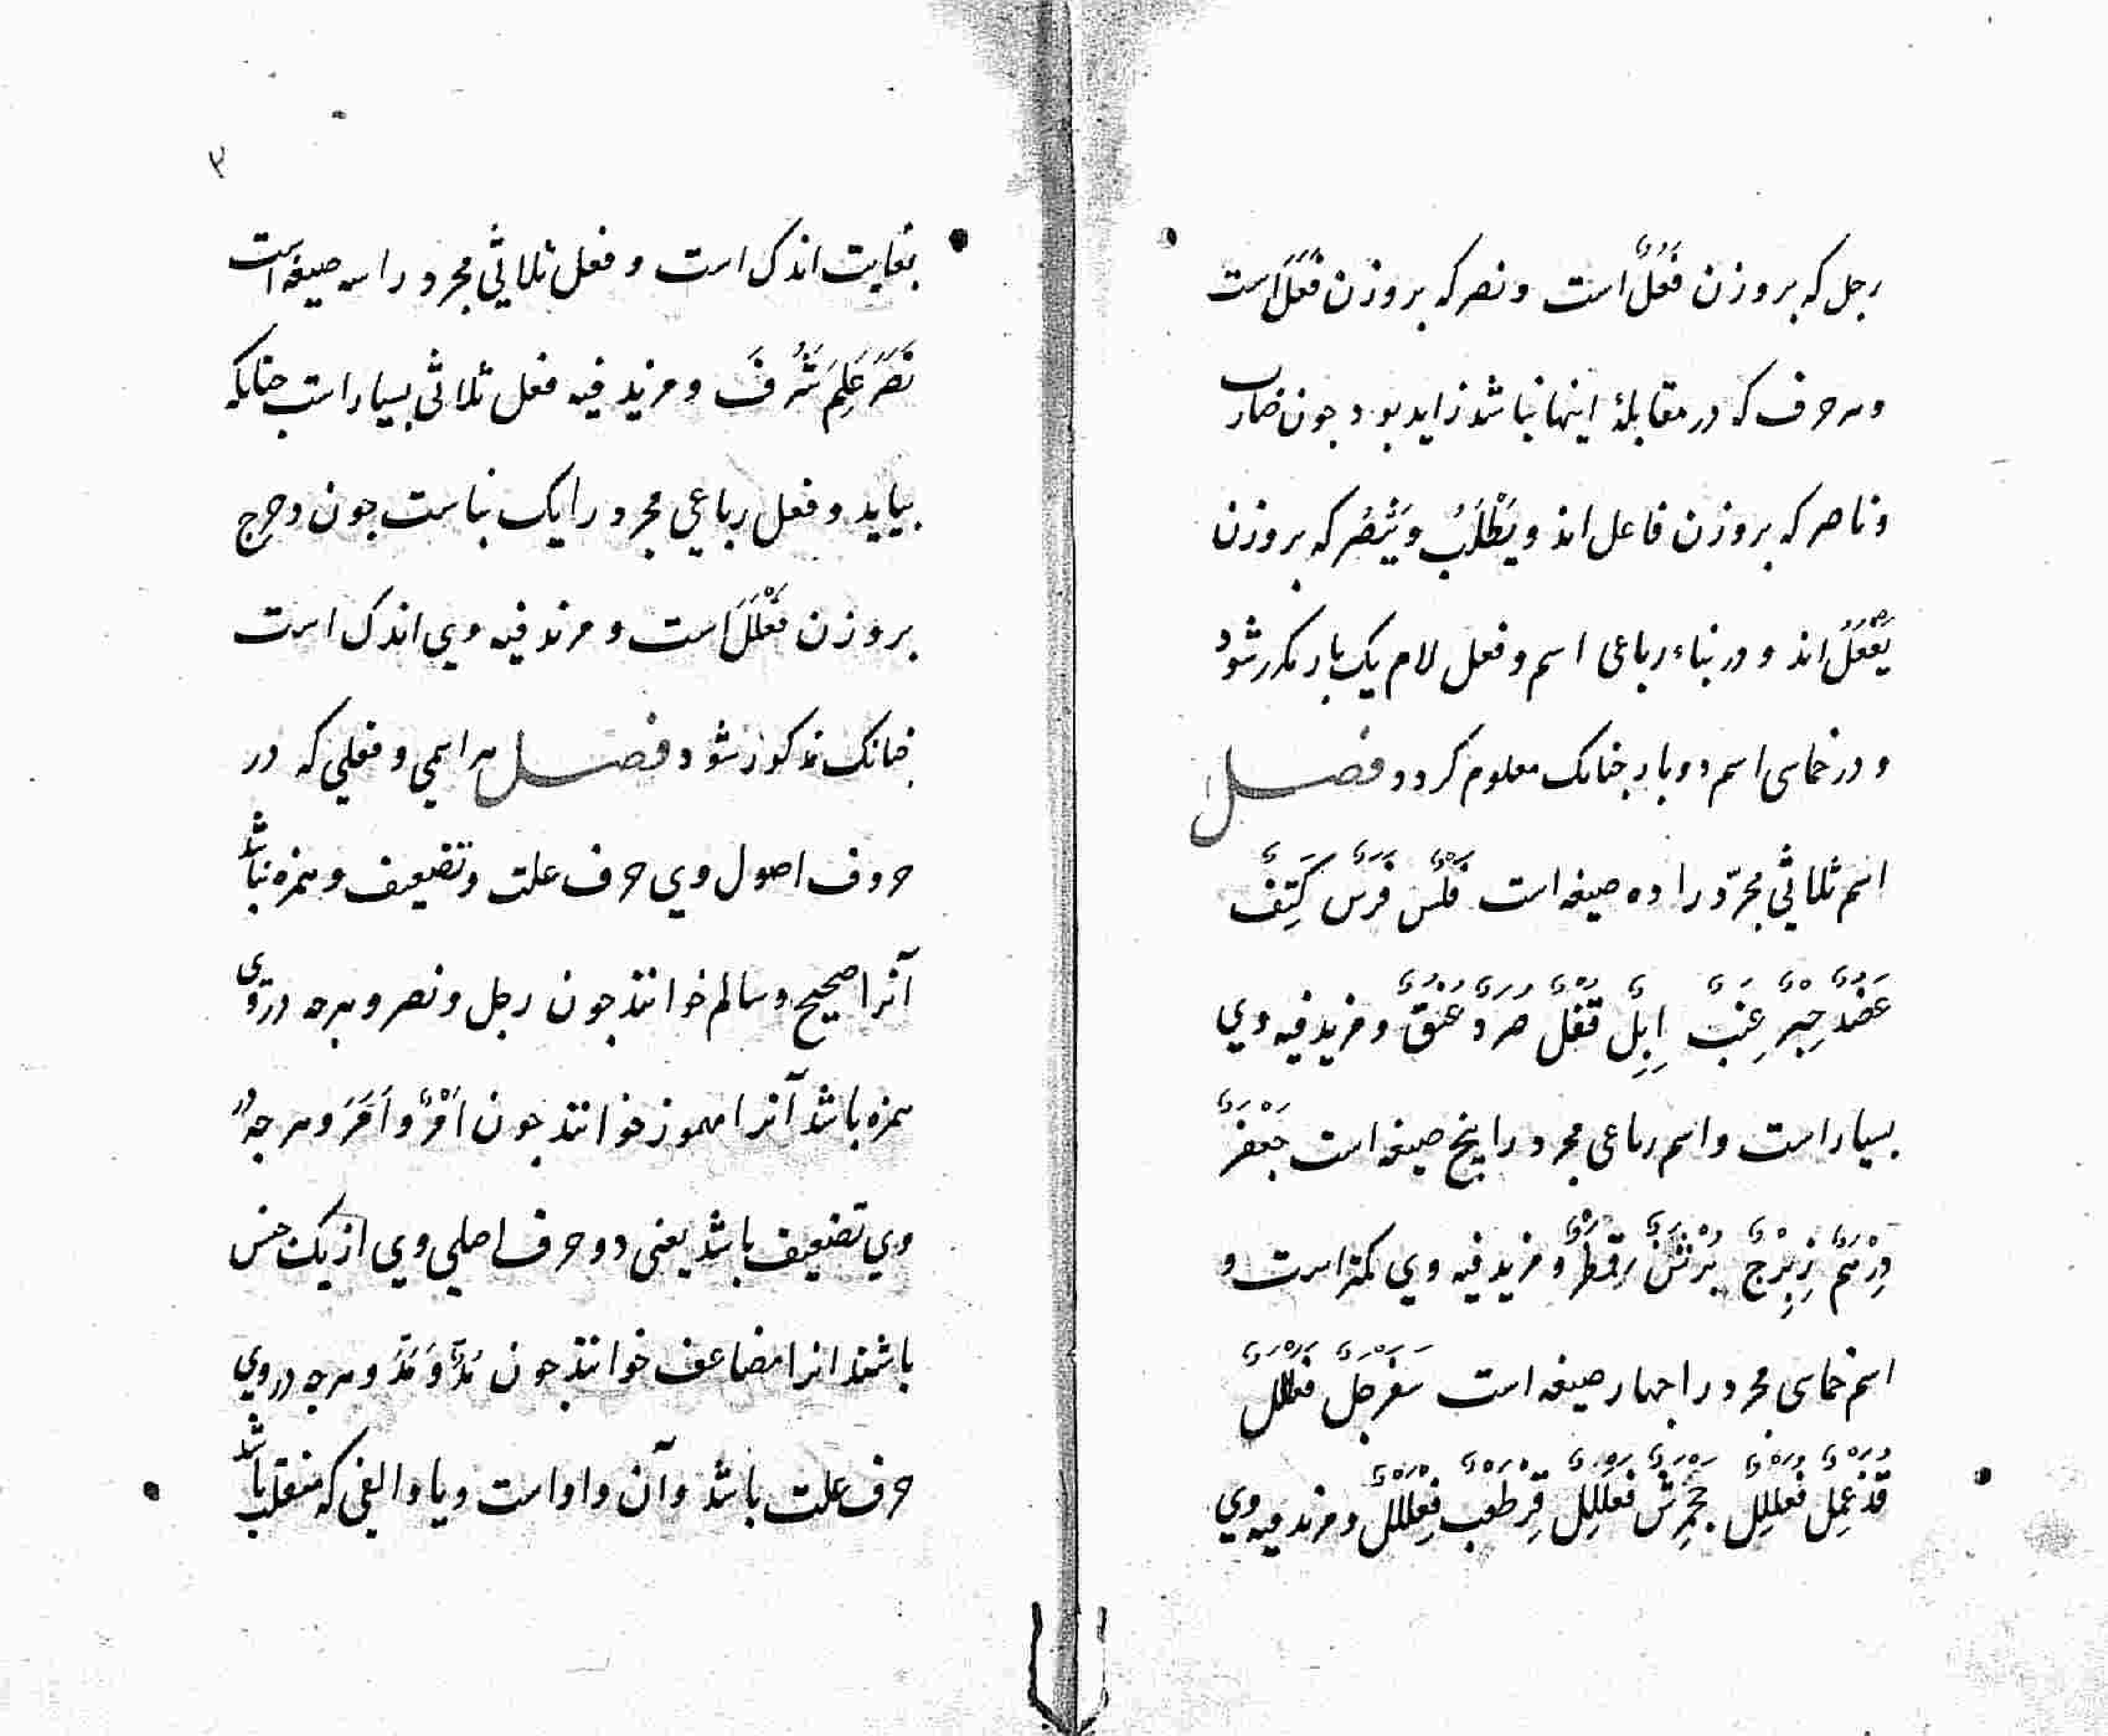 رجل که بر وزن فَعُلٌ است و نصر که بر وزن فَعَلَ است
و هر حرف که در مقابلهٔ اینها نباشد زاید بود جون ضارب
و ناصر که بر وزن فاعل اند و یَطْلُبُ و یَنْصُر که بر وزن
یَفْعُلُ اند و در بناء رباعی اسم و فعل لام یک بار مکرر شود
و در خماسی اسم دو بار جنانک معلوم کردد فصل
اسم ثلاثی مجرّد را ده صیغه است فَلْسٌ فَرَسٌ کَتِفٌ
عَضُدٌ حِبْرٌ عِنَبٌ اِبِلٌ قُفْلٌ صُرَدٌ عُنُقٌ و مزید فیه وی
بسیار است و اسم رباعی مجرد را پنج صیغه است جَعْفَرٌ
دِرْهَمٌ زِبْرِجٌ بُرْثُنٌ قِمَطْرٌ و مزید فیه وی کمتر است و
اسم خماسی مجرد را جهار صیغه است سَفَرْجَلٌ فَعَلْلَلٌ
قُذَعْمِلٌ فُعَلْلِلٌ جَحْمَرِشٌ فَعْلَلِلٌ قِرْطَعْبٌ فِعْلَلْلٌ و مزید فیه وی
۳
بغایت اندک است و فعل ثلاثی مجرد را سه صیغه است
نَصَرَ عَلِمَ شَرُفَ و مزید فیه فعل ثلاثی بسیار است جنانکه
بیاید و فعل رباعی مجرد را یک بناست جون دحرج
بر وزن فَعْلَلَ است و مزید فیه وی اندک است
جنانک مذکور شود فصل هر اسمی و فعلی که در
حروف اصول وی حرف علت و تضعیف و همزه نباشد
آنرا صحیح و سالم خوانند جون رجل و نصر و هرجه در وی
همزه باشد آنرا مهموز خوانند جون اَمْرٌ و اَمَرَ و هرجه در
وی تضعیف باشد یعنی دو حرف اصلی وی از یک جنس
باشند انرا مضاعف خوانند جون مَدٌّ و مَدَّ و هرجه در وی
حرف علت باشد و آن واو است و یا و الفی که منقلب باشد